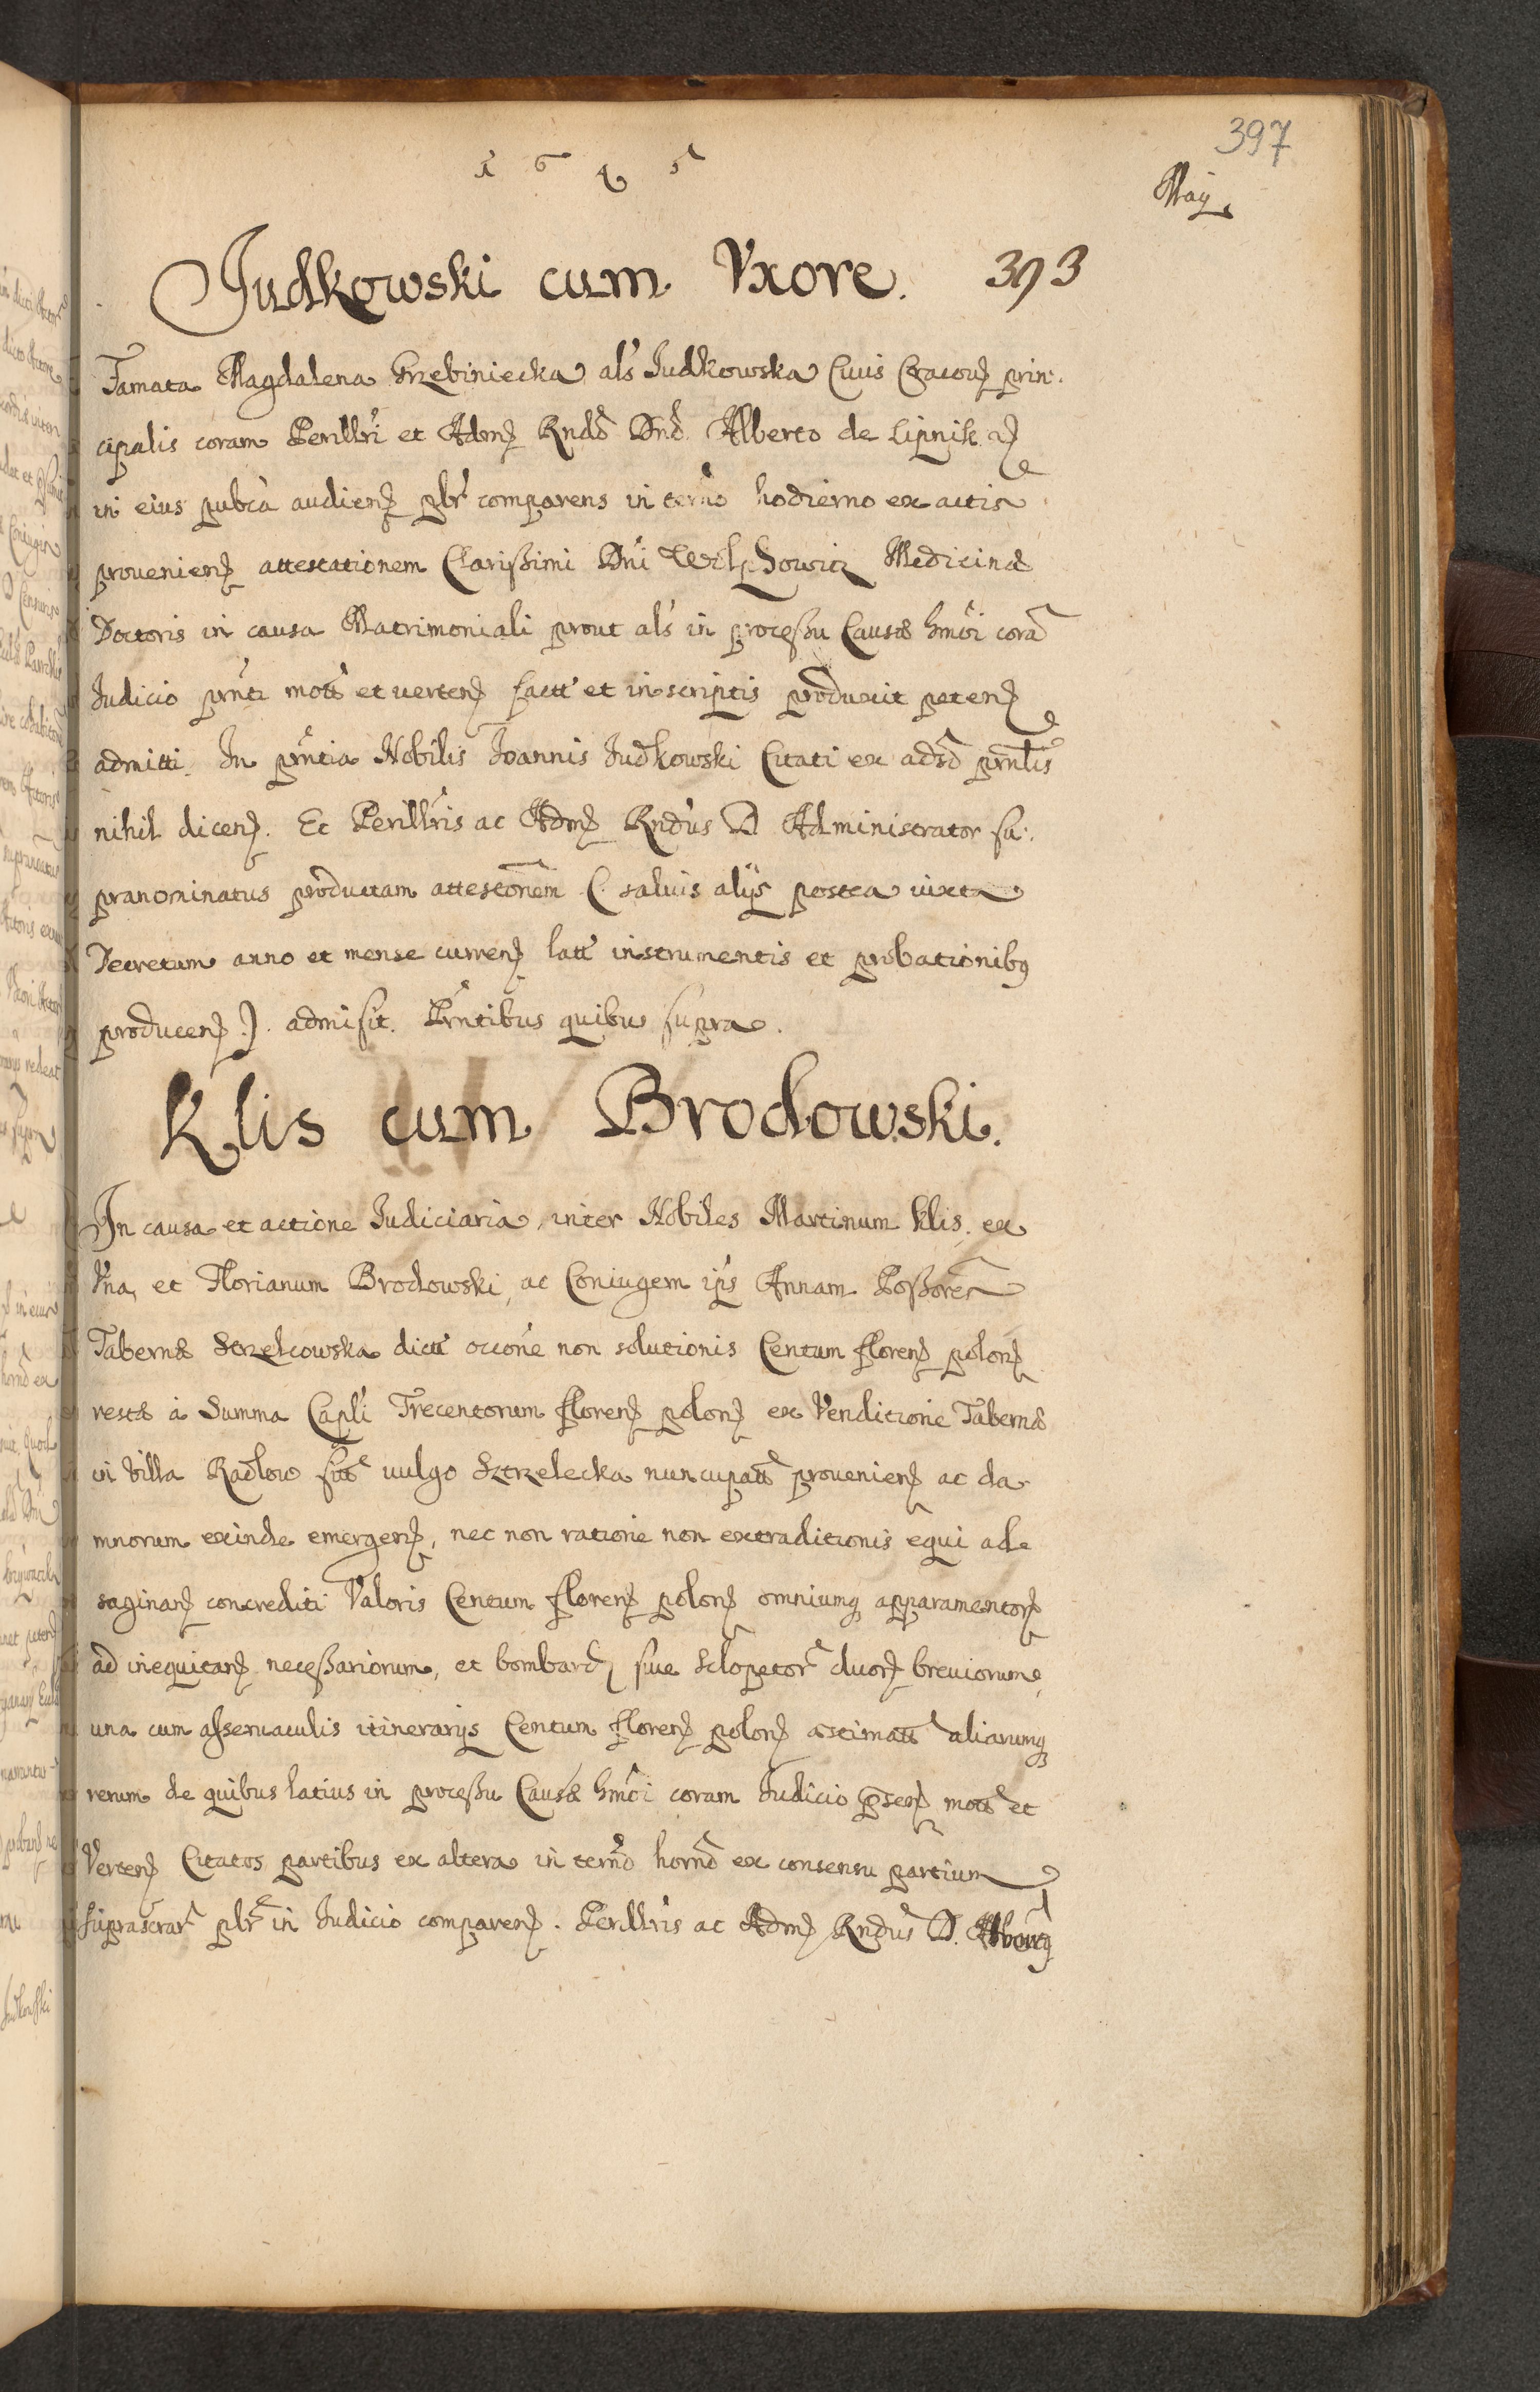 397
1645
Maij
Judkowski cum Vxore. 393
Famata Magdalena Grzebiniecka als Judkowska Ciuis Cracouien prin-
cipalis coram Perillri et Adm Rndo Dno Alberto de Lipnik
in eius pubca audien plr comparens in termo hodierno ex actis
prouenien attestationem Clarißimi Dni Medicinæ
Doctoris in causa Matrimoniali prout als in proceßu Causæ hmoi cora
Iudicio prnti mott et verten fact et in scriptis produxit peten
admitti. In prntia Nobilis Joannis Judkowski Citati ex aduso prnlis
nihil dicen. Et Perillris ac Adm Rndus D Administrator su-
pranominatus productam attestonem (salvis alijs postea iuxta
Decretum anno et mense curren latt instrumentis et probationibq
producen). admisit. Prntibus quibus supra.
Klis cum Brodowski.
In causa et actione Judiciaria, inter Nobiles Martinum Klis, ex
Vna, et Florianum Brodowski, ac Coniugem ips Annam Poßores
Tabernæ Strzelcowska dict occone non solutionis Centum floren polon
restæ à Summa Capli Trecentorum floren polon ex Venditione Tabernæ
in Villa Radlow sitæ vulgo Sztrzelecka nuncupatt prouenien ac da-
mnorum exinde emergen, nec non ratione non extraditionis equi ad
saginan concrediti Valoris Centum floren polon omniumq apparamentor
ad inequitan neceßariorum, et bombard siue Sclopetor duor breuiorum,
una cum asseruaculis itinerarijs Centum floren polon æstimatt aliarumq
rerum de quibus latius in proceßu Causæ hmoi coram Judicio psen mott et
Verten Citatos partibus ex altera in termo horno ex consensu partium
suprascrar plr in Judicio comparen. Perillris ac Adm Rndus D.